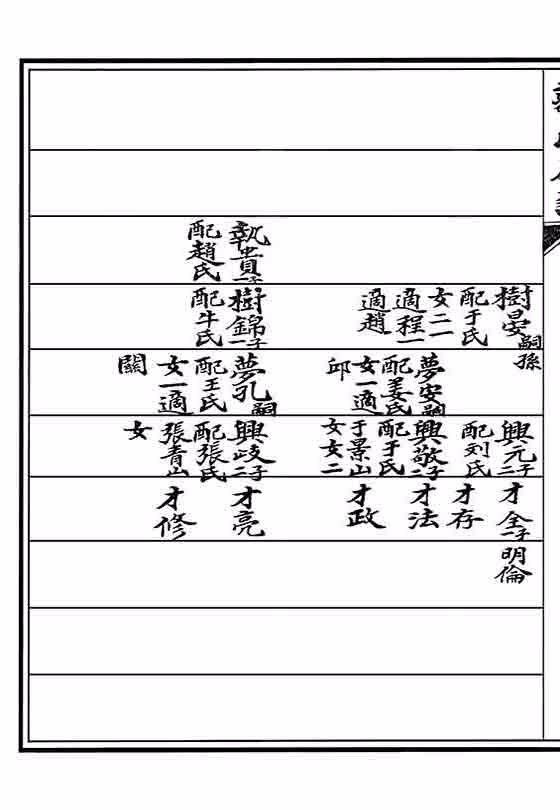 執貴一子
配趙氏
樹晏嗣孫
配于氏
女二一
適程一
適趙
樹錦一子
配牛氏
夢安嗣
配姜氏
女一適
邱
夢孔嗣
配王氏
女一適
關
興元二子
配刘氏
興敬二子
配于氏
于景山
女女二
興歧二子
配張氏
張青山
女
才全一子
才存
才法
才政
才亮
才修
明倫